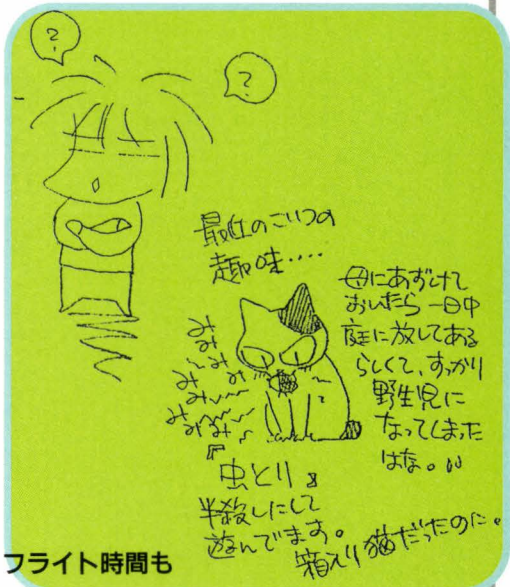 ?
?
最近のこいつの
趣味‥‥
母にあずけて
おいたら一日中
庭に放してある
らしくて、すっかり
野生児に
なってしまった
はな。
みみみ
みみ〜
みみ〜
みみ〜
みみみ
虫とり
半殺しにして
遊んでます。
箱入り猫だったのに。
フライト時間も